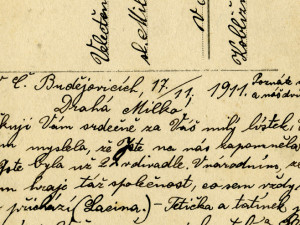 Velectěn
sl. Mil
v
Koblížk
Č. Budějovicích, 17/11. 1911. Poznák
a náš dů
Drahá Milko!
kuji Vám srdečně za Váš milý lístek,
myslela, že Jste na nás zapomněla
Jste byla už 2x v divadle. V národním,
m hrají táž společnost, co sem vždy
přichází (Lacina). – Tetička a tatínek